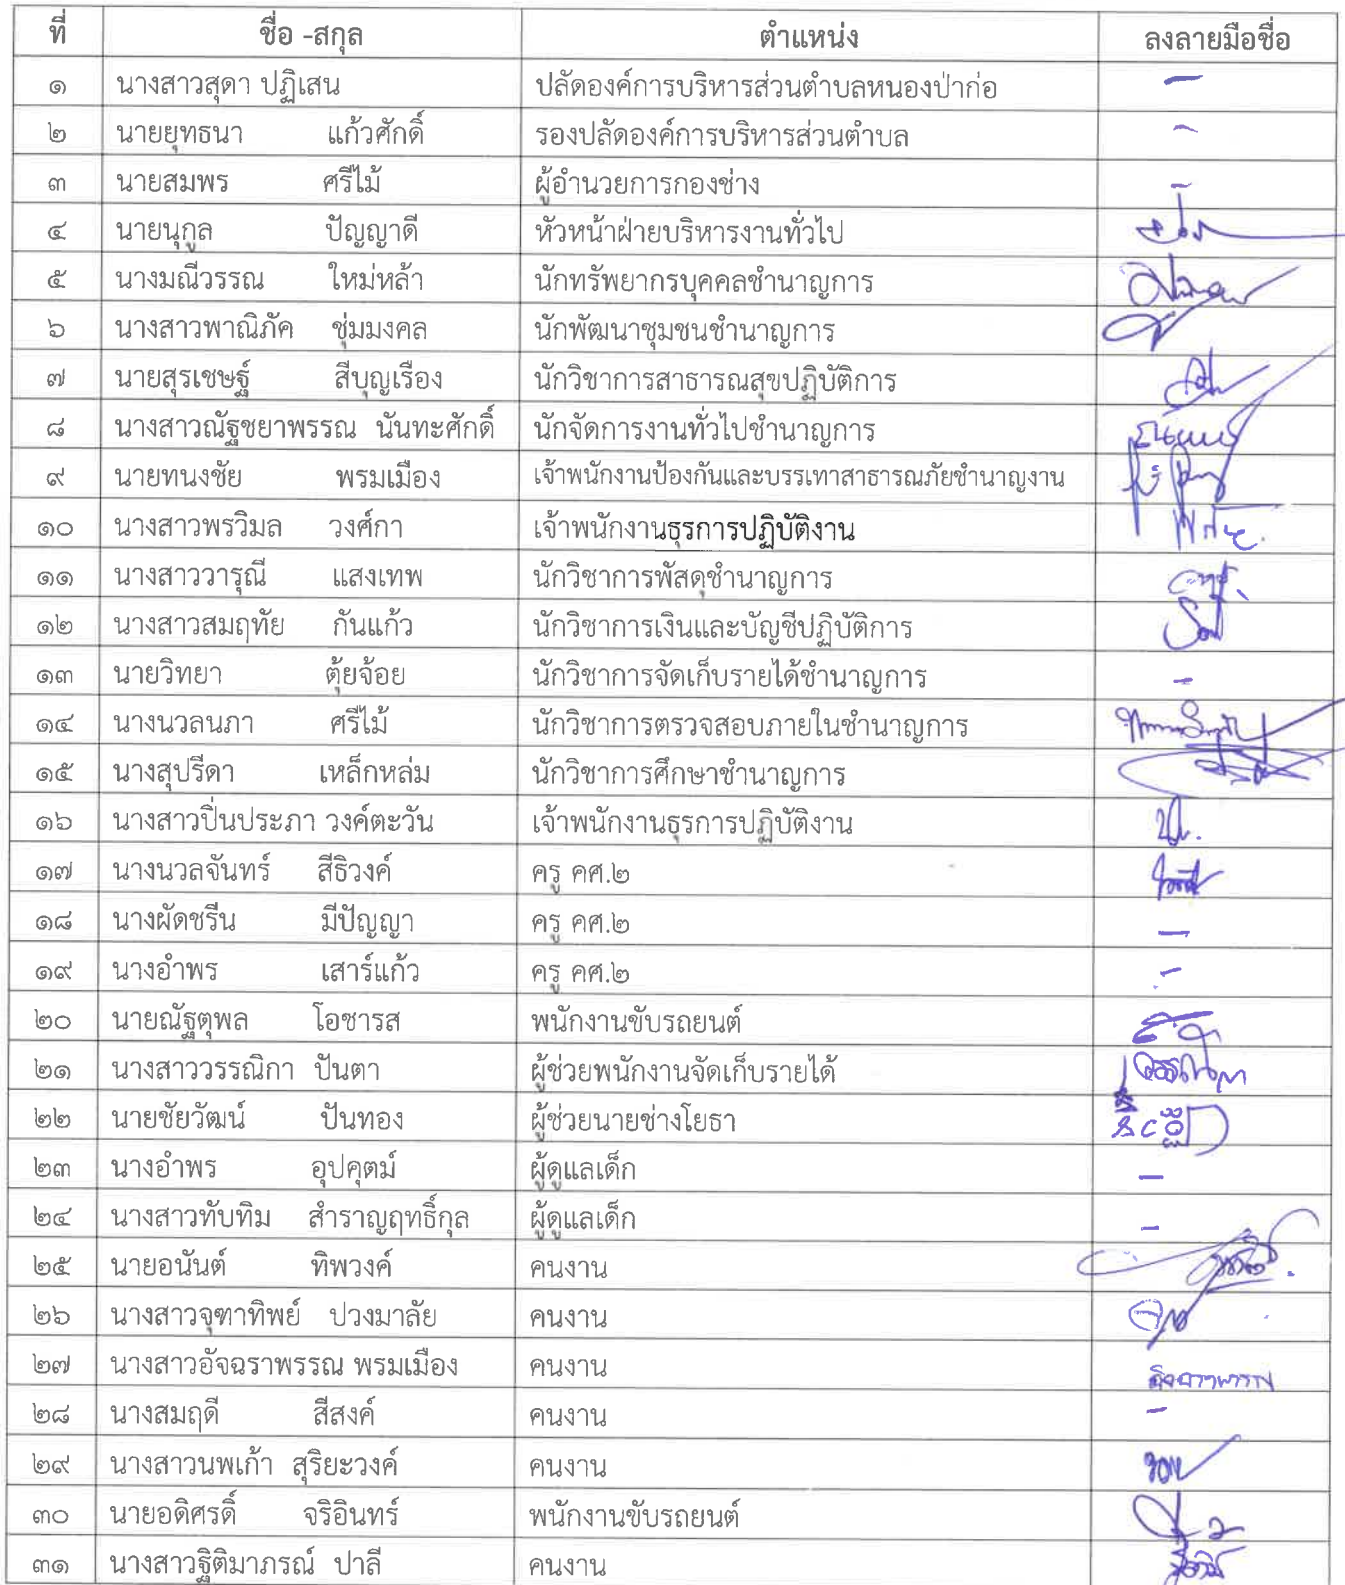 ที่ ชื่อ -สกุล ตำแหน่ง ลงลายมือชื่อ
๑ นางสาวสุดา ปฏิเสน ปลัดองค์การบริหารส่วนตำบลหนองป่าก่อ -
๒ นายยุทธนา แก้วศักดิ์ รองปลัดองค์การบริหารส่วนตำบล -
๓ นายสมพร ศรีไม้ ผู้อำนวยการกองช่าง -
๔ นายนุกูล ปัญญาดี หัวหน้าฝ่ายบริหารงานทั่วไป
๕ นางมณีวรรณ ใหม่หล้า นักทรัพยากรบุคคลชำนาญการ
๖ นางสาวพาณิภัค ชุ่มมงคล นักพัฒนาชุมชนชำนาญการ
๗ นายสุรเชษฐ์ สีบุญเรือง นักวิชาการสาธารณสุขปฏิบัติการ
๘ นางสาวณัฐชยาพรรณ นันทะศักดิ์ นักจัดการงานทั่วไปชำนาญการ
๙ นายทนงชัย พรมเมือง เจ้าพนักงานป้องกันและบรรเทาสาธารณภัยชำนาญงาน
๑๐ นางสาวพรวิมล วงศ์กา เจ้าพนักงานธุรการปฏิบัติงาน
๑๑ นางสาววารุณี แสงเทพ นักวิชาการพัสดุชำนาญการ
๑๒ นางสาวสมฤทัย กันแก้ว นักวิชาการเงินและบัญชีปฏิบัติการ
๑๓ นายวิทยา ตุ้ยจ้อย นักวิชาการจัดเก็บรายได้ชำนาญการ -
๑๔ นางนวลนภา ศรีไม้ นักวิชาการตรวจสอบภายในชำนาญการ
๑๕ นางสุปรีดา เหล็กหล่ม นักวิชาการศึกษาชำนาญการ
๑๖ นางสาวปิ่นประภา วงค์ตะวัน เจ้าพนักงานธุรการปฏิบัติงาน
๑๗ นางนวลจันทร์ สีธิวงค์ ครู คศ.๒
๑๘ นางผัดชรีน มีปัญญา ครู คศ.๒ -
๑๙ นางอำพร เสาร์แก้ว ครู คศ.๒ -
๒๐ นายณัฐตุพล โอชารส พนักงานขับรถยนต์
๒๑ นางสาววรรณิกา ปันตา ผู้ช่วยพนักงานจัดเก็บรายได้ วรรณิกา
๒๒ นายชัยวัฒน์ ปันทอง ผู้ช่วยนายช่างโยธา
๒๓ นางอำพร อุปคุตม์ ผู้ดูแลเด็ก -
๒๔ นางสาวทับทิม สำราญฤทธิ์กุล ผู้ดูแลเด็ก -
๒๕ นายอนันต์ ทิพวงค์ คนงาน
๒๖ นางสาวจุฑาทิพย์ ปวงมาลัย คนงาน
๒๗ นางสาวอัจฉราพรรณ พรมเมือง คนงาน อัจฉราพรรณ
๒๘ นางสมฤดี สีสงค์ คนงาน -
๒๙ นางสาวนพเก้า สุริยะวงค์ คนงาน
๓๐ นายอดิศรดิ์ จริอินทร์ พนักงานขับรถยนต์
๓๑ นางสาวฐิติมาภรณ์ ปาลี คนงาน